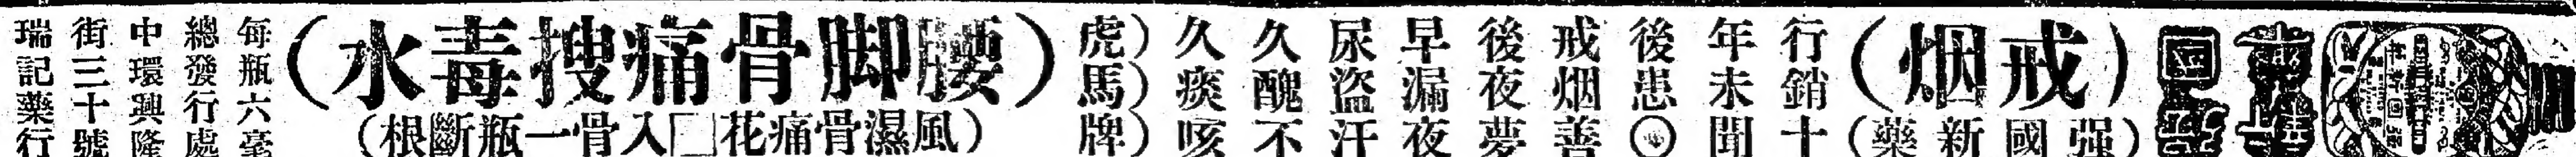 (戒烟)
(强國新藥)
行銷十
年未聞
後患
戒烟善
後夜夢
早漏夜
尿盜汗
久醜不
久痰咳
(虎馬牌)
(腰脚骨痛搜毒水)
(風濕骨痛花□入骨一瓶斷根)
每瓶六毫
總發行處
中環興隆
街三十號
瑞記藥行